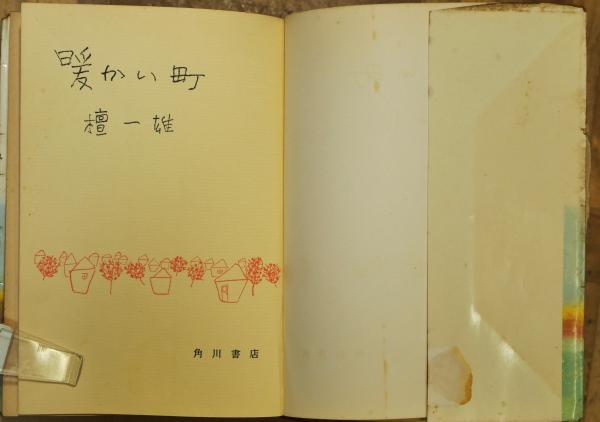 暖かい町
檀一雄
角川書店